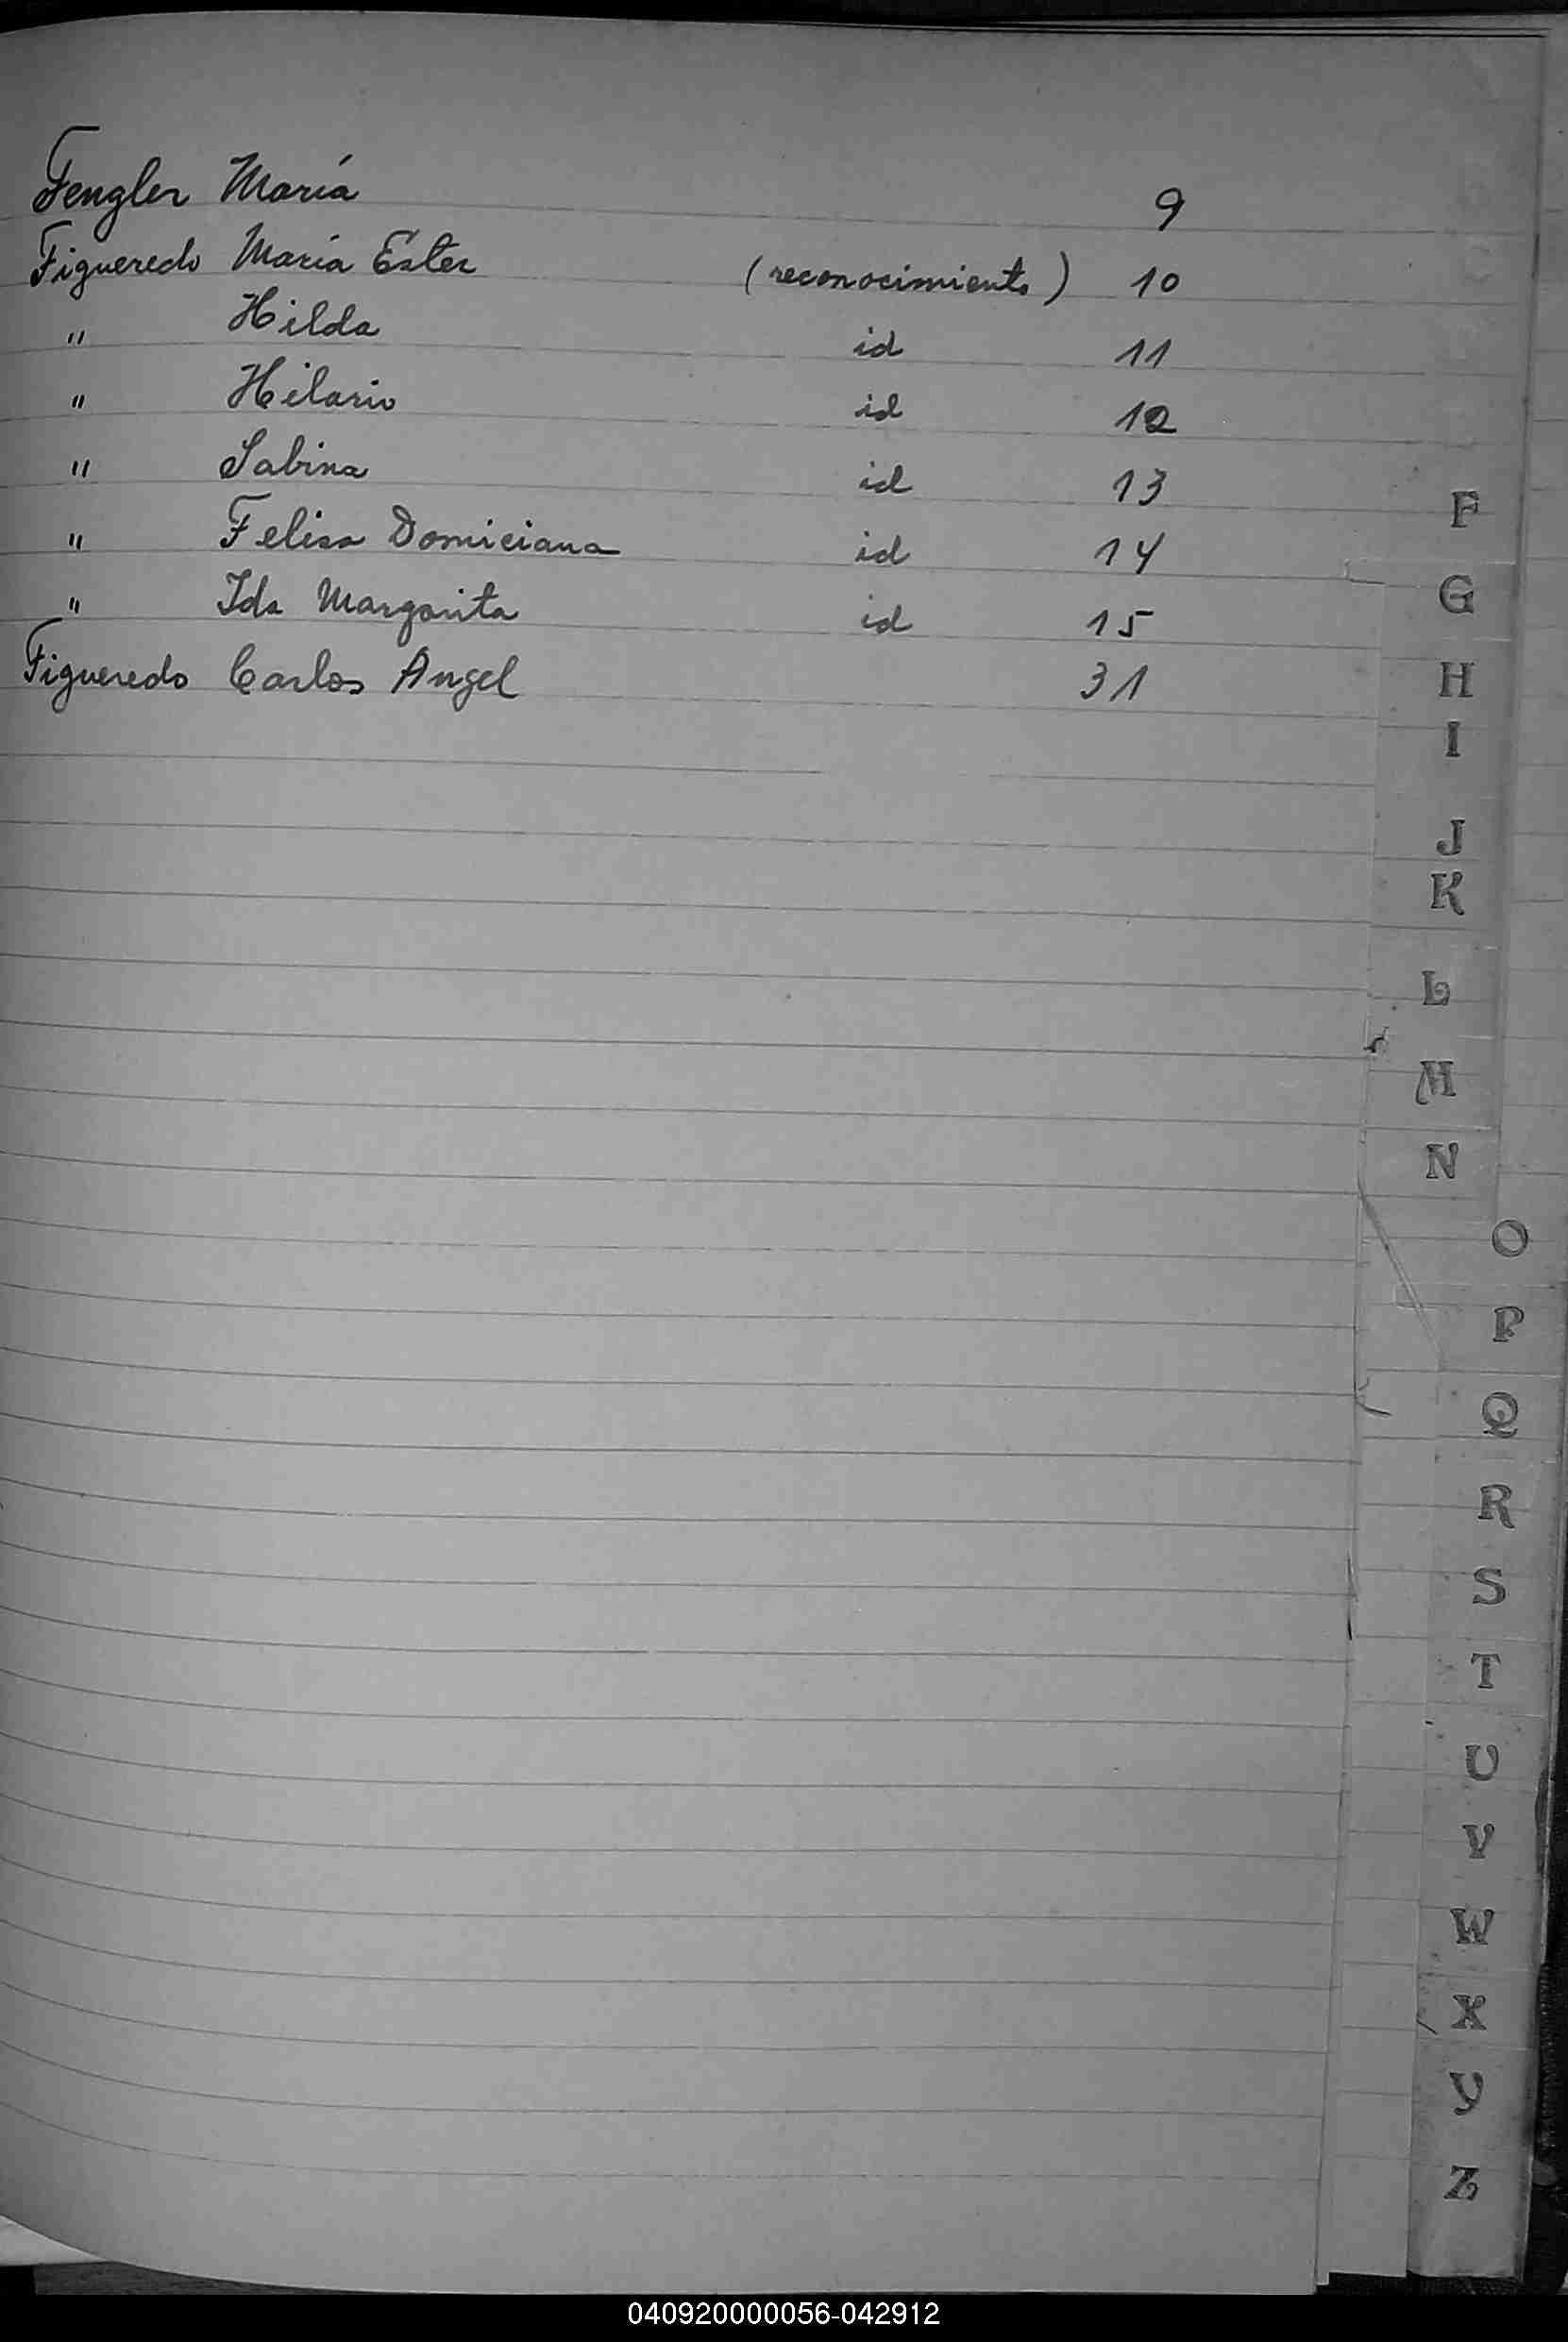 Fengler María 9
Figueredo María Ester (reconocimiento) 10
" Hilda id 11
" Hilario id 12
" Sabina id 13
" Felisa Domiciana id 14
" Ida Margarita id 15
Figueredo Carlos Angel 31
F
G
H
I
J
K
L
M
N
O
P
Q
R
S
T
U
V
W
X
Y
Z
040920000056-042912